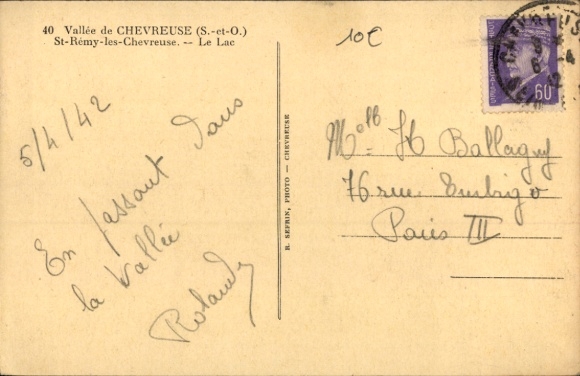 40 Vallée de CHEVREUSE (S.-et-O.)
St-Rémy-les-Chevreuse. -- Le Lac
10€
60
5/4/42
En passant dans
la Vallée
Rolande
R. SEFRIN, PHOTO - CHEVREUSE
Melle H Ballagny
76 rue Turbigo
Paris III